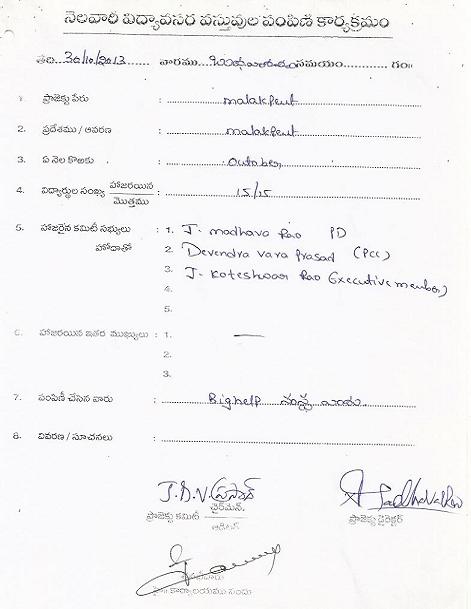 నెలవారీ విద్యావసర వస్తువుల పంపిణీ కార్యక్రమం
తేది...30/10/2013 వారము...బుధవారం సమయం............గం॥
1. ప్రాజెక్టు పేరు : malakpent
2. ప్రదేశము / ఆవరణ : malakpent
3. ఏ నెల కొఱకు : october
4. విద్యార్థుల సంఖ్య హాజరయిన / మొత్తము : 15/15
5. హాజరైన కమిటీ సభ్యులు : 1. J. madhava Rao PD
హోదాతో 2. Devendra vara Prasad (PCC)
3. J. Koteshwar Rao (Executive member)
4.
5.
6. హాజరయిన ఇతర ముఖ్యులు : 1. —
2.
3.
7. పంపిణీ చేసిన వారు : Bighelp సంస్థ
8. వివరణ / సూచనలు :
J.D.V. ప్రసాద్
ప్రాజెక్టు కమిటీ చైర్మెన్ ప్రాజెక్టు డైరెక్టర్
ఆడిటర్